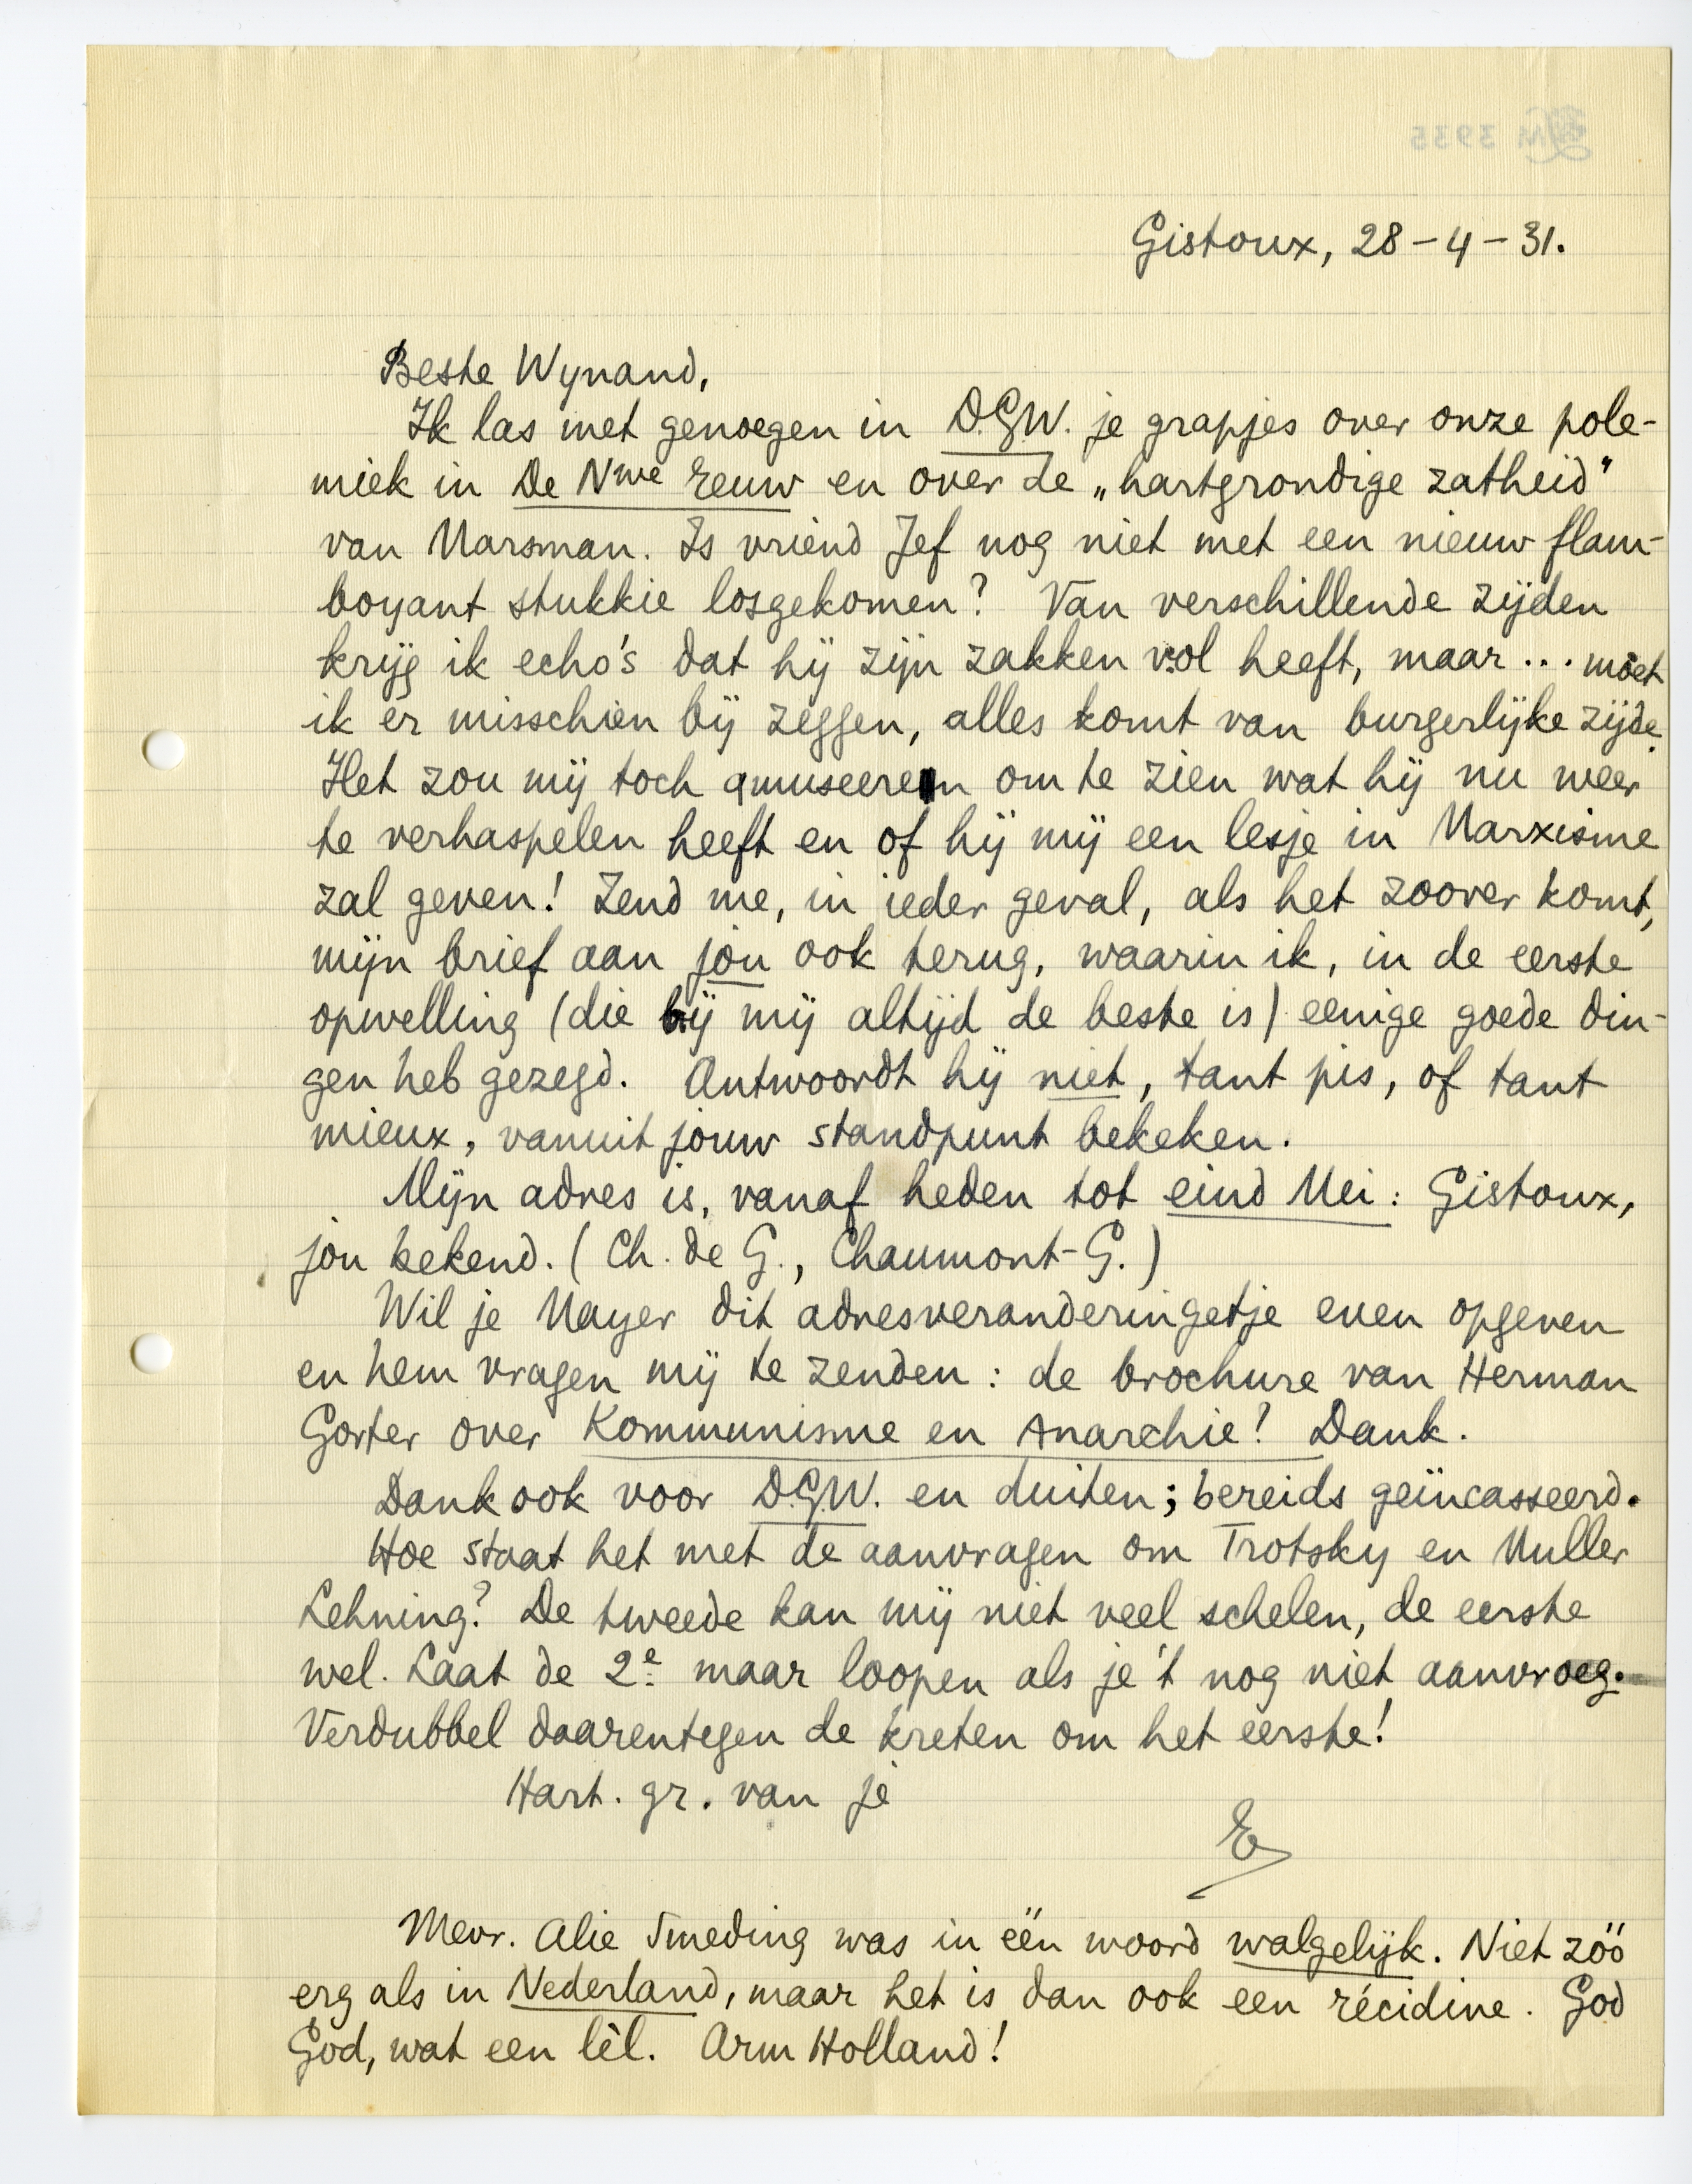 Gistoux, 28-4-31.
Beste Wynand,
Ik las met genoegen in D.G.W. je grapjes over onze pole-
miek in De Nwe Eeuw en over de „hartgrondige zatheid"
van Marsman. Is vriend Jef nog niet met een nieuw flam-
boyant stukkie losgekomen? Van verschillende zijden
krijg ik echo's dat hij zijn zakken vol heeft, maar... moet
ik er misschien bij zeggen, alles komt van burgerlijke zijde.
Het zou mij toch amuseeren om te zien wat hij nu weer
te verhaspelen heeft en of hij mij een lesje in Marxisme
zal geven! Zend me, in ieder geval, als het zoover komt,
mijn brief aan jou ook terug, waarin ik, in de eerste
opwelling (die bij mij altijd de beste is) eenige goede din-
gen heb gezegd. Antwoordt hij niet, tant pis, of tant
mieux, vanuit jouw standpunt bekeken.
Mijn adres is, vanaf heden tot eind Mei: Gistoux,
jou bekend. (Ch. de G., Chaumont-G.)
Wil je Mayer dit adresveranderingetje even opgeven
en hem vragen mij te zenden: de brochure van Herman
Gorter over Kommunisme en Anarchie? Dank.
Dank ook voor D.G.W. en duiten; bereids geïncasseerd.
Hoe staat het met de aanvragen om Trotsky en Muller
Lehning? De tweede kan mij niet veel schelen, de eerste
wel. Laat de 2e maar loopen als je 't nog niet aanvroeg.
Verdubbel daarentegen de kreten om het eerste!
Hart. gr. van je
E
Mevr. Alie Smeding was in één woord walgelijk. Niet zóó
erg als in Nederland, maar het is dan ook een récidive. God
God, wat een lèl. Arm Holland!